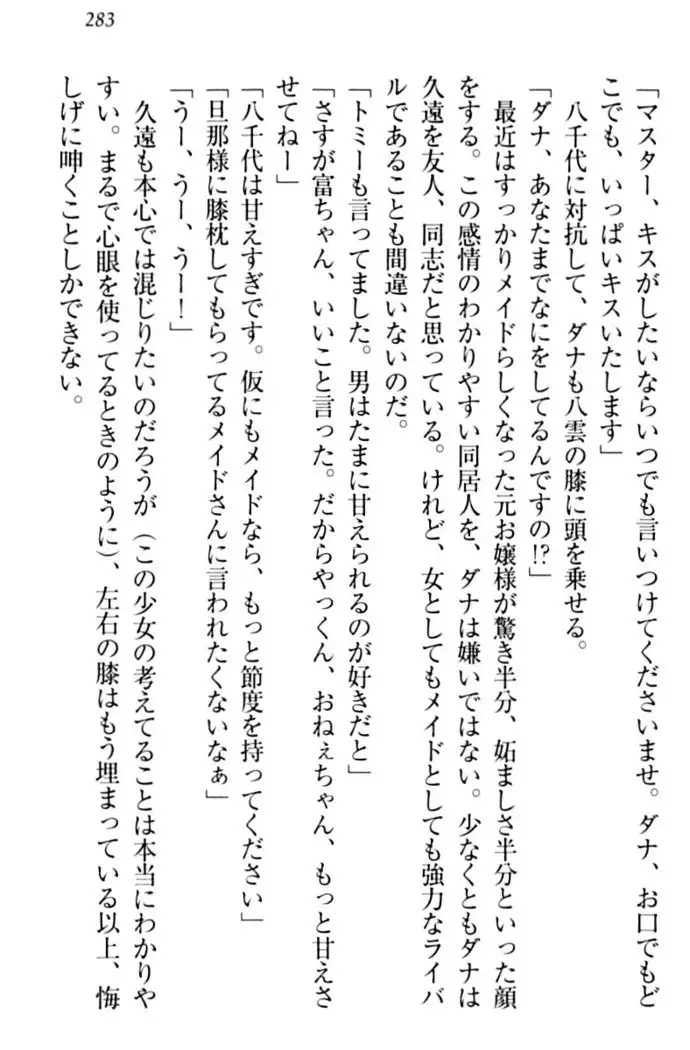 283
「マスター、キスがしたいならいつでも言いつけてくださいませ。ダナ、お口でもど
こでも、いっぱいキスいたします」
八千代に対抗して、ダナも八雲の膝に頭を乗せる。
「ダナ、あなたまでなにをしてるんですの!?」
最近はすっかりメイドらしくなった元お嬢様が驚き半分、妬ましさ半分といった顔
をする。この感情のわかりやすい同居人を、ダナは嫌いではない。少なくともダナは
久遠を友人、同志だと思っている。けれど、女としてもメイドとしても強力なライバ
ルであることも間違いないのだ。
「トミーも言ってました。男はたまに甘えられるのが好きだと」
「さすが富ちゃん、いいこと言った。だからやっくん、おねぇちゃん、もっと甘えさ
せてねー」
「八千代は甘えすぎです。仮にもメイドなら、もっと節度を持ってください」
「旦那様に膝枕してもらってるメイドさんに言われたくないなぁ」
「うー、うー、うー！」
久遠も本心では混じりたいのだろうが（この少女の考えてることは本当にわかりや
すい。まるで心眼を使ってるときのように）、左右の膝はもう埋まっている以上、悔
しげに呻くことしかできない。